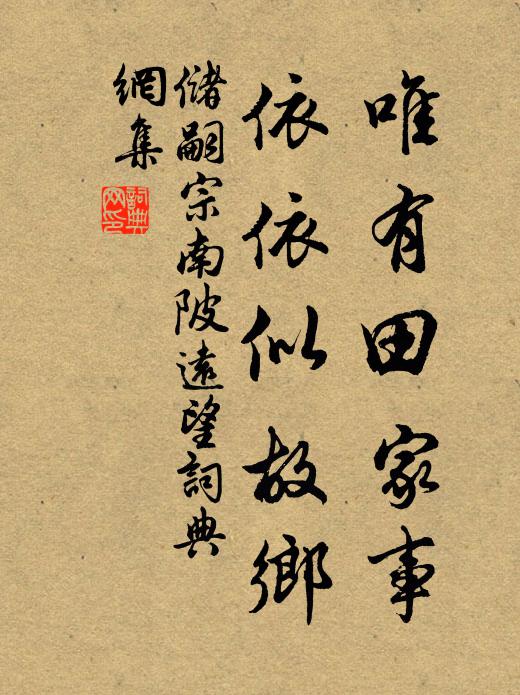 唯有田家事
依依似故鄉
儲嗣宗南陂遠望詞典
網集
詞典網印